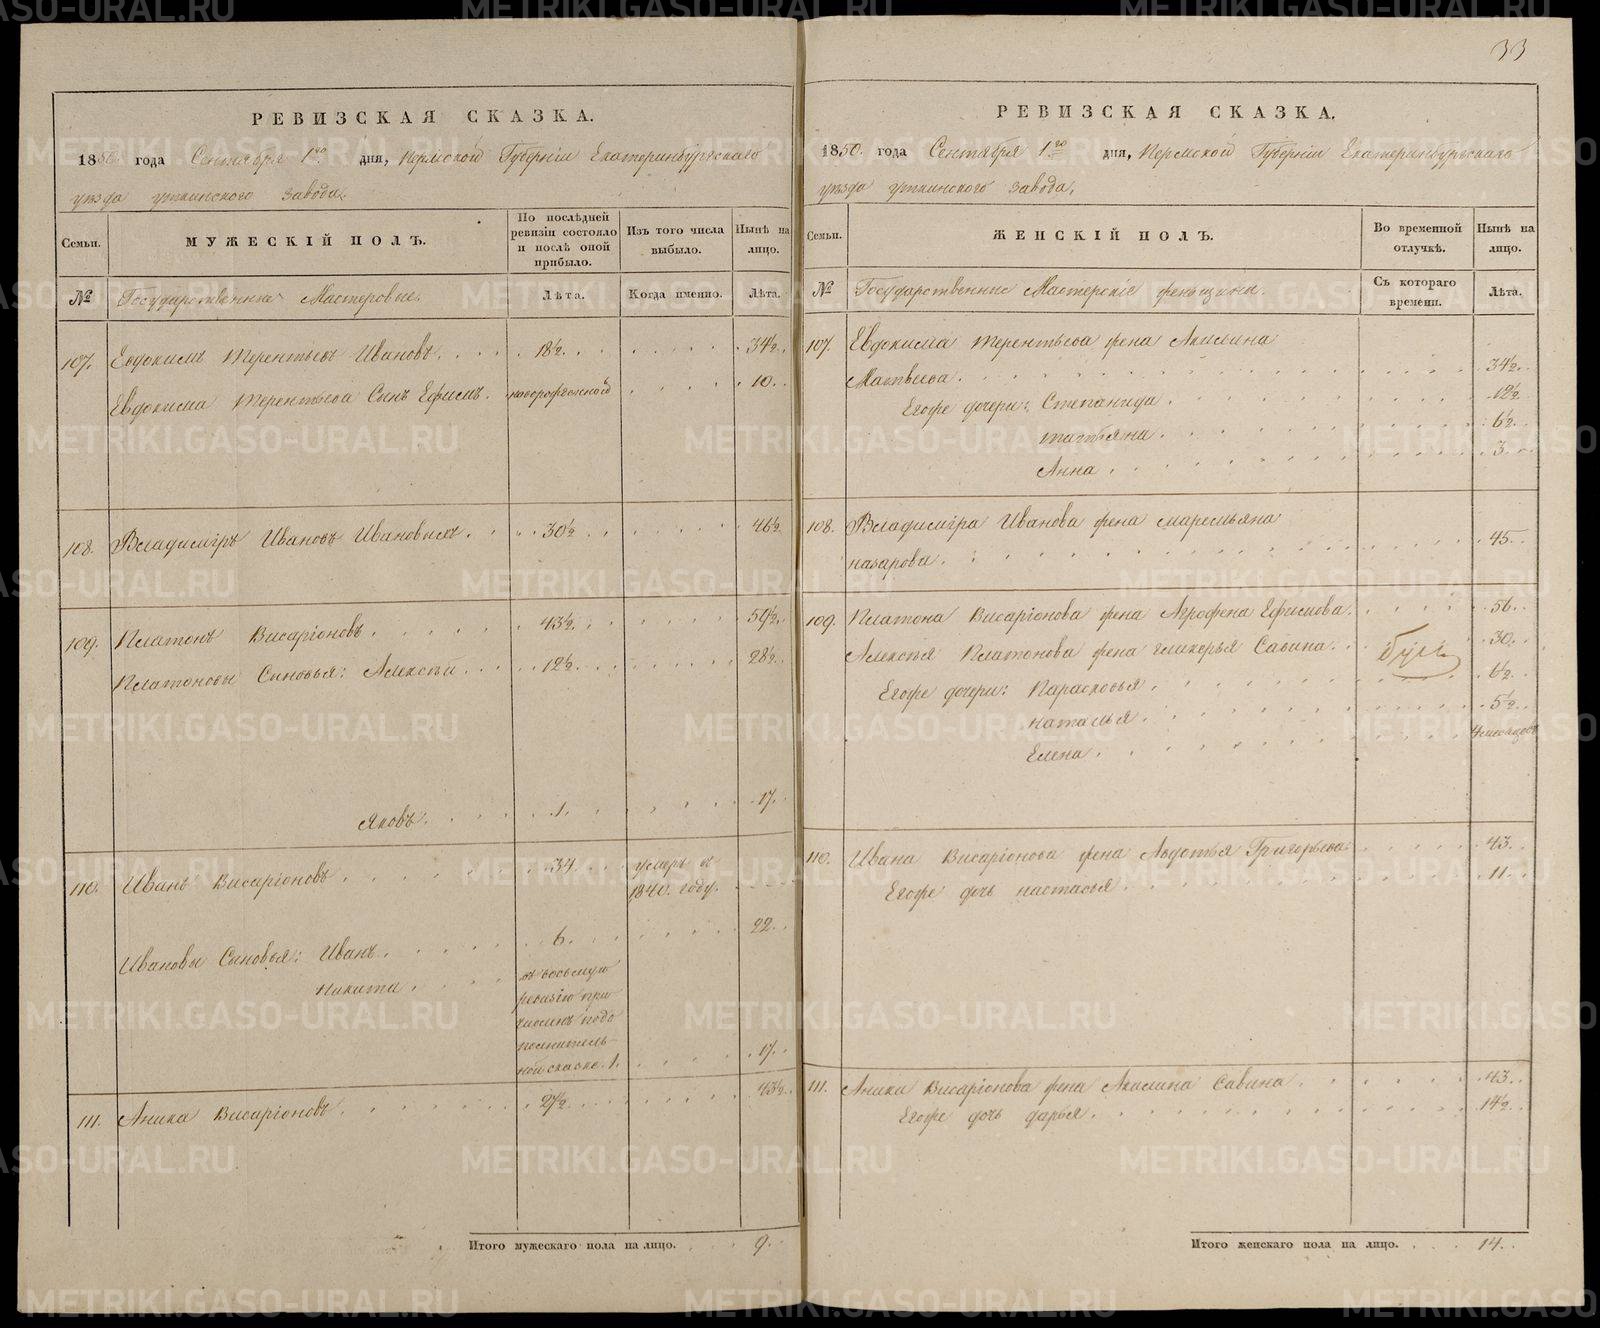 33
РЕВИЗСКАЯ СКАЗКА.
1850. года Сентября 1го дня, Пермской Губернiи Екатеринбургскаго
уѣзда уткинского завода.
Семьи.
МУЖЕСКІЙ ПОЛЪ.
По послѣдней ревизіи состояло и послѣ оной прибыло.
Изъ того числа выбыло.
Нынѣ на лицо.
№
Государственные Мастеровые.
Лѣта.
Когда именно.
Лѣта.
107. Евдокимъ Терентьевъ Ивановъ. 18½. 34½.
Евдокима Терентьева Сынъ Ефимъ. новорожденной 10.
108. Владимiръ Ивановъ Ивановыхъ. 30½ 46½
109. Платонъ Висарiоновъ. 43½. 59½.
Платоновы Сыновья: Алексѣй. 12½. 28½.
Яковъ. 1. 17.
110. Иванъ Висарiоновъ. 34. умеръ в
1840. году.
Ивановы Сыновья: Иванъ. 6. 22.
Никита. въ восьмую
ревизiю при
численъ подо
полнитель-
ной сказке. 1. 17.
111. Аника Висарiоновъ. 27½. 43½.
Итого мужескаго пола на лицо. 9.
РЕВИЗСКАЯ СКАЗКА.
1850. года Сентября 1го дня, Пермской Губернiи Екатеринбургскаго
уѣзда уткинского завода.
Семьи.
ЖЕНСКІЙ ПОЛЪ.
Во временной отлучкѣ.
Нынѣ на лицо.
№
Государственные Мастерскiе женщины.
Съ котораго времени.
Лѣта.
107. Евдокима Терентьева жена Акилина
Матвѣева. 34½.
Егоже дочери: Степанида. 12½
татьяна. 6½.
Анна. 3.
108. Владимiра Иванова жена маремьяна
назарова. 45.
109. Платона Висарiонова жена Агрофена Ефимова. 56.
Алексѣя Платонова жена гликерья Савина. 30.
Егоже дочери: Парасковья. 6½
наталья. 5½.
Елена. 4 месяцовъ
110. Ивана Висарiонова жена Авдотья Григорьева. 43.
Егоже дочь настасья. 11.
111. Аники Висарiонова жена Акилина Савина. 43.
Егоже дочь дарья. 14½.
Итого женскаго пола на лицо. 14.
METRIKI.GASO-URAL.RU